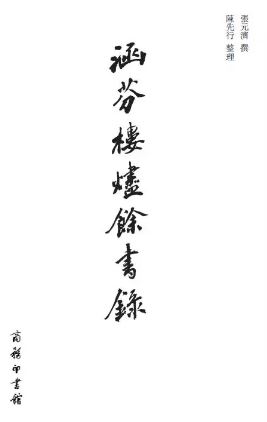 張元濟 撰
陳先行 整理
涵芬樓燼餘書錄
商務印書館